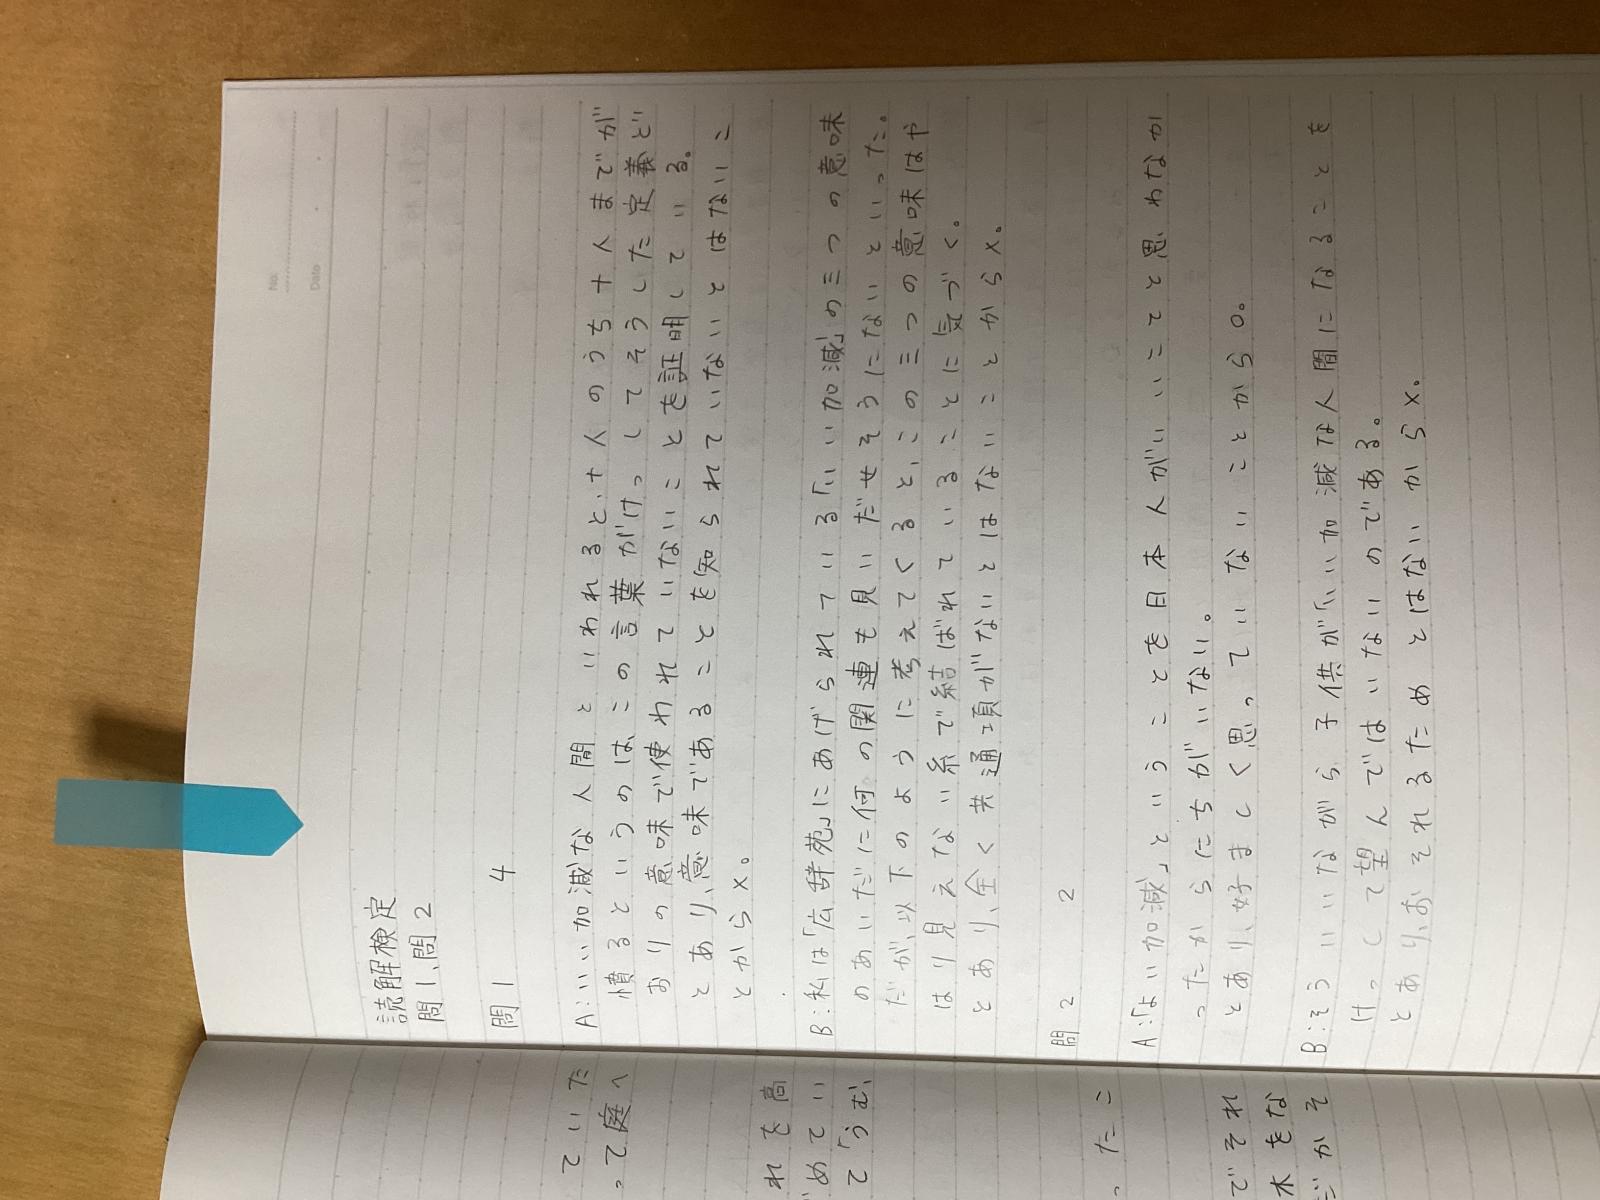 No.
Date
読解検定
問1、問2
問1 4
A:いい加減な人間といわれると、十人のうち十人までが
憤るというのは、この言葉がけっしてそうした定義ど
おりの意味で使われていないことを証明している。
とあり、意味であることを知られていないとはないこ
とから×。
B:私は「広辞苑」にあげられている「いい加減」の三つの意味
のあいだに何の関連も見いだせそうにないといった。
だが、以下のように考えてくると、この三つの意味はや
はり見えない糸で結ばれていることに気づく。
とあり、全く共通項がないとはないことから×。
問2 2
A:「よい加減」ということを日本人がいいことと思わなか
ったからにちがいない。
とあり、好ましく思っていないことから○。
B:そういいながら子供が「いい加減な人間になることを
けっして望んではいないのである。
とあり、おそれるためとはないから×。
ていた
って庭へ
れを高
めてい
て「うむ、
ったこ
でそれ
木をな
だかそ